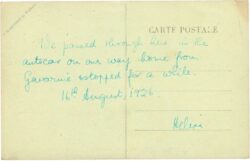 CARTE POSTALE
We passed through here in the
autocar on our way home from
Gavarnie & stopped for a while.
16th August, 1926.